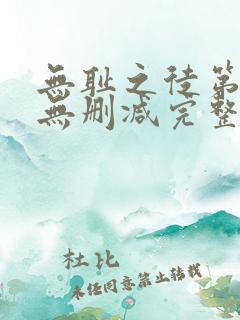 無耻之徒第
無删减完整
杜比
未经同意禁止转载